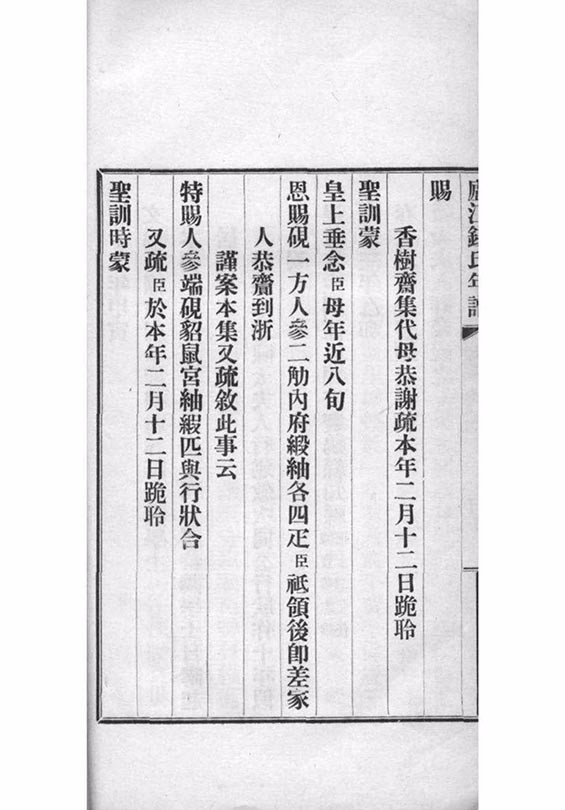 廬江錢氏年譜
賜
香樹齋集代母恭謝疏本年二月十二日跪聆
聖訓蒙
皇上垂念臣母年近八旬
恩賜硯一方人參二觔內府緞紬各四疋臣祗領後卽差家
人恭齎到浙
謹案本集又疏敘此事云
特賜人參端硯貂鼠宮紬緞匹與行狀合
又疏臣於本年二月十二日跪聆
聖訓時蒙